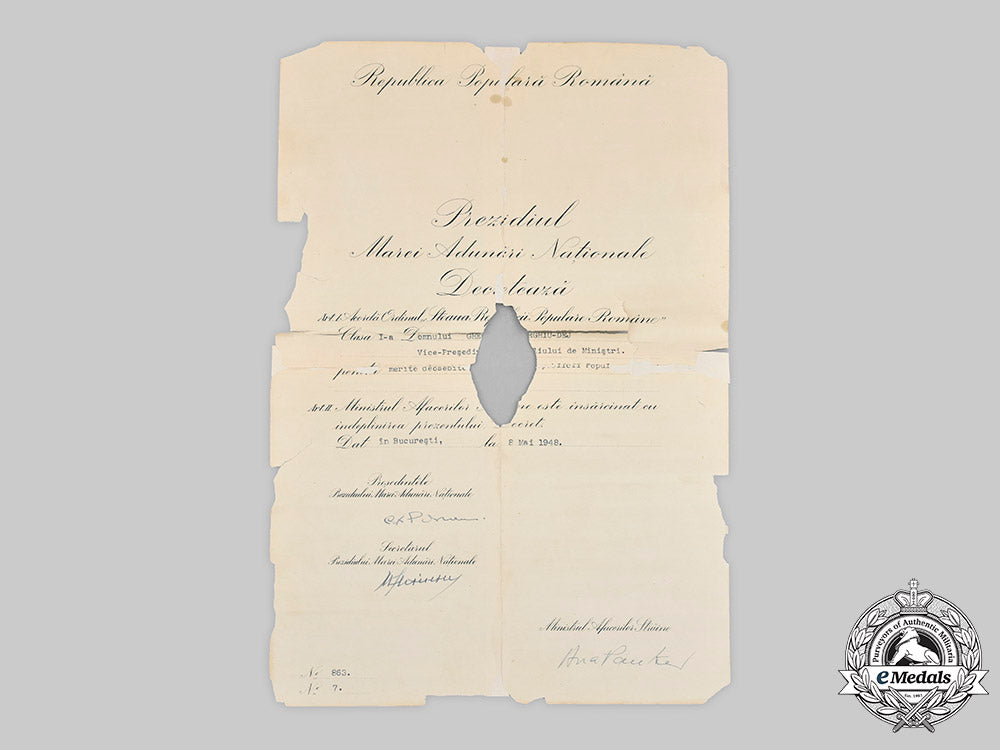 Republica Populară Română
Prezidiul
Marei Adunări Naționale
Decretează
Art. I. Acordă Ordinul „Steaua Re cii Populare Române"
Clasa I-a Domnului GHE RGHIU-DEJ
Vice-Preşedin liului de Miniştri.
pentru merite deosebite
Art. II. Ministrul Afacerilor ne este însărcinat cu
îndeplinirea prezentului Decret.
Dat în Bucureşti, la 8 Mai 1948.
Președintele
Prezidiului Marei Adunări Naționale
Secretarul
Prezidiului Marei Adunări Naționale
Ministrul Afacerilor Străine
Ana Pauker
No. 863.
No. 7.
Purveyors of Authentic Militaria
eMedals